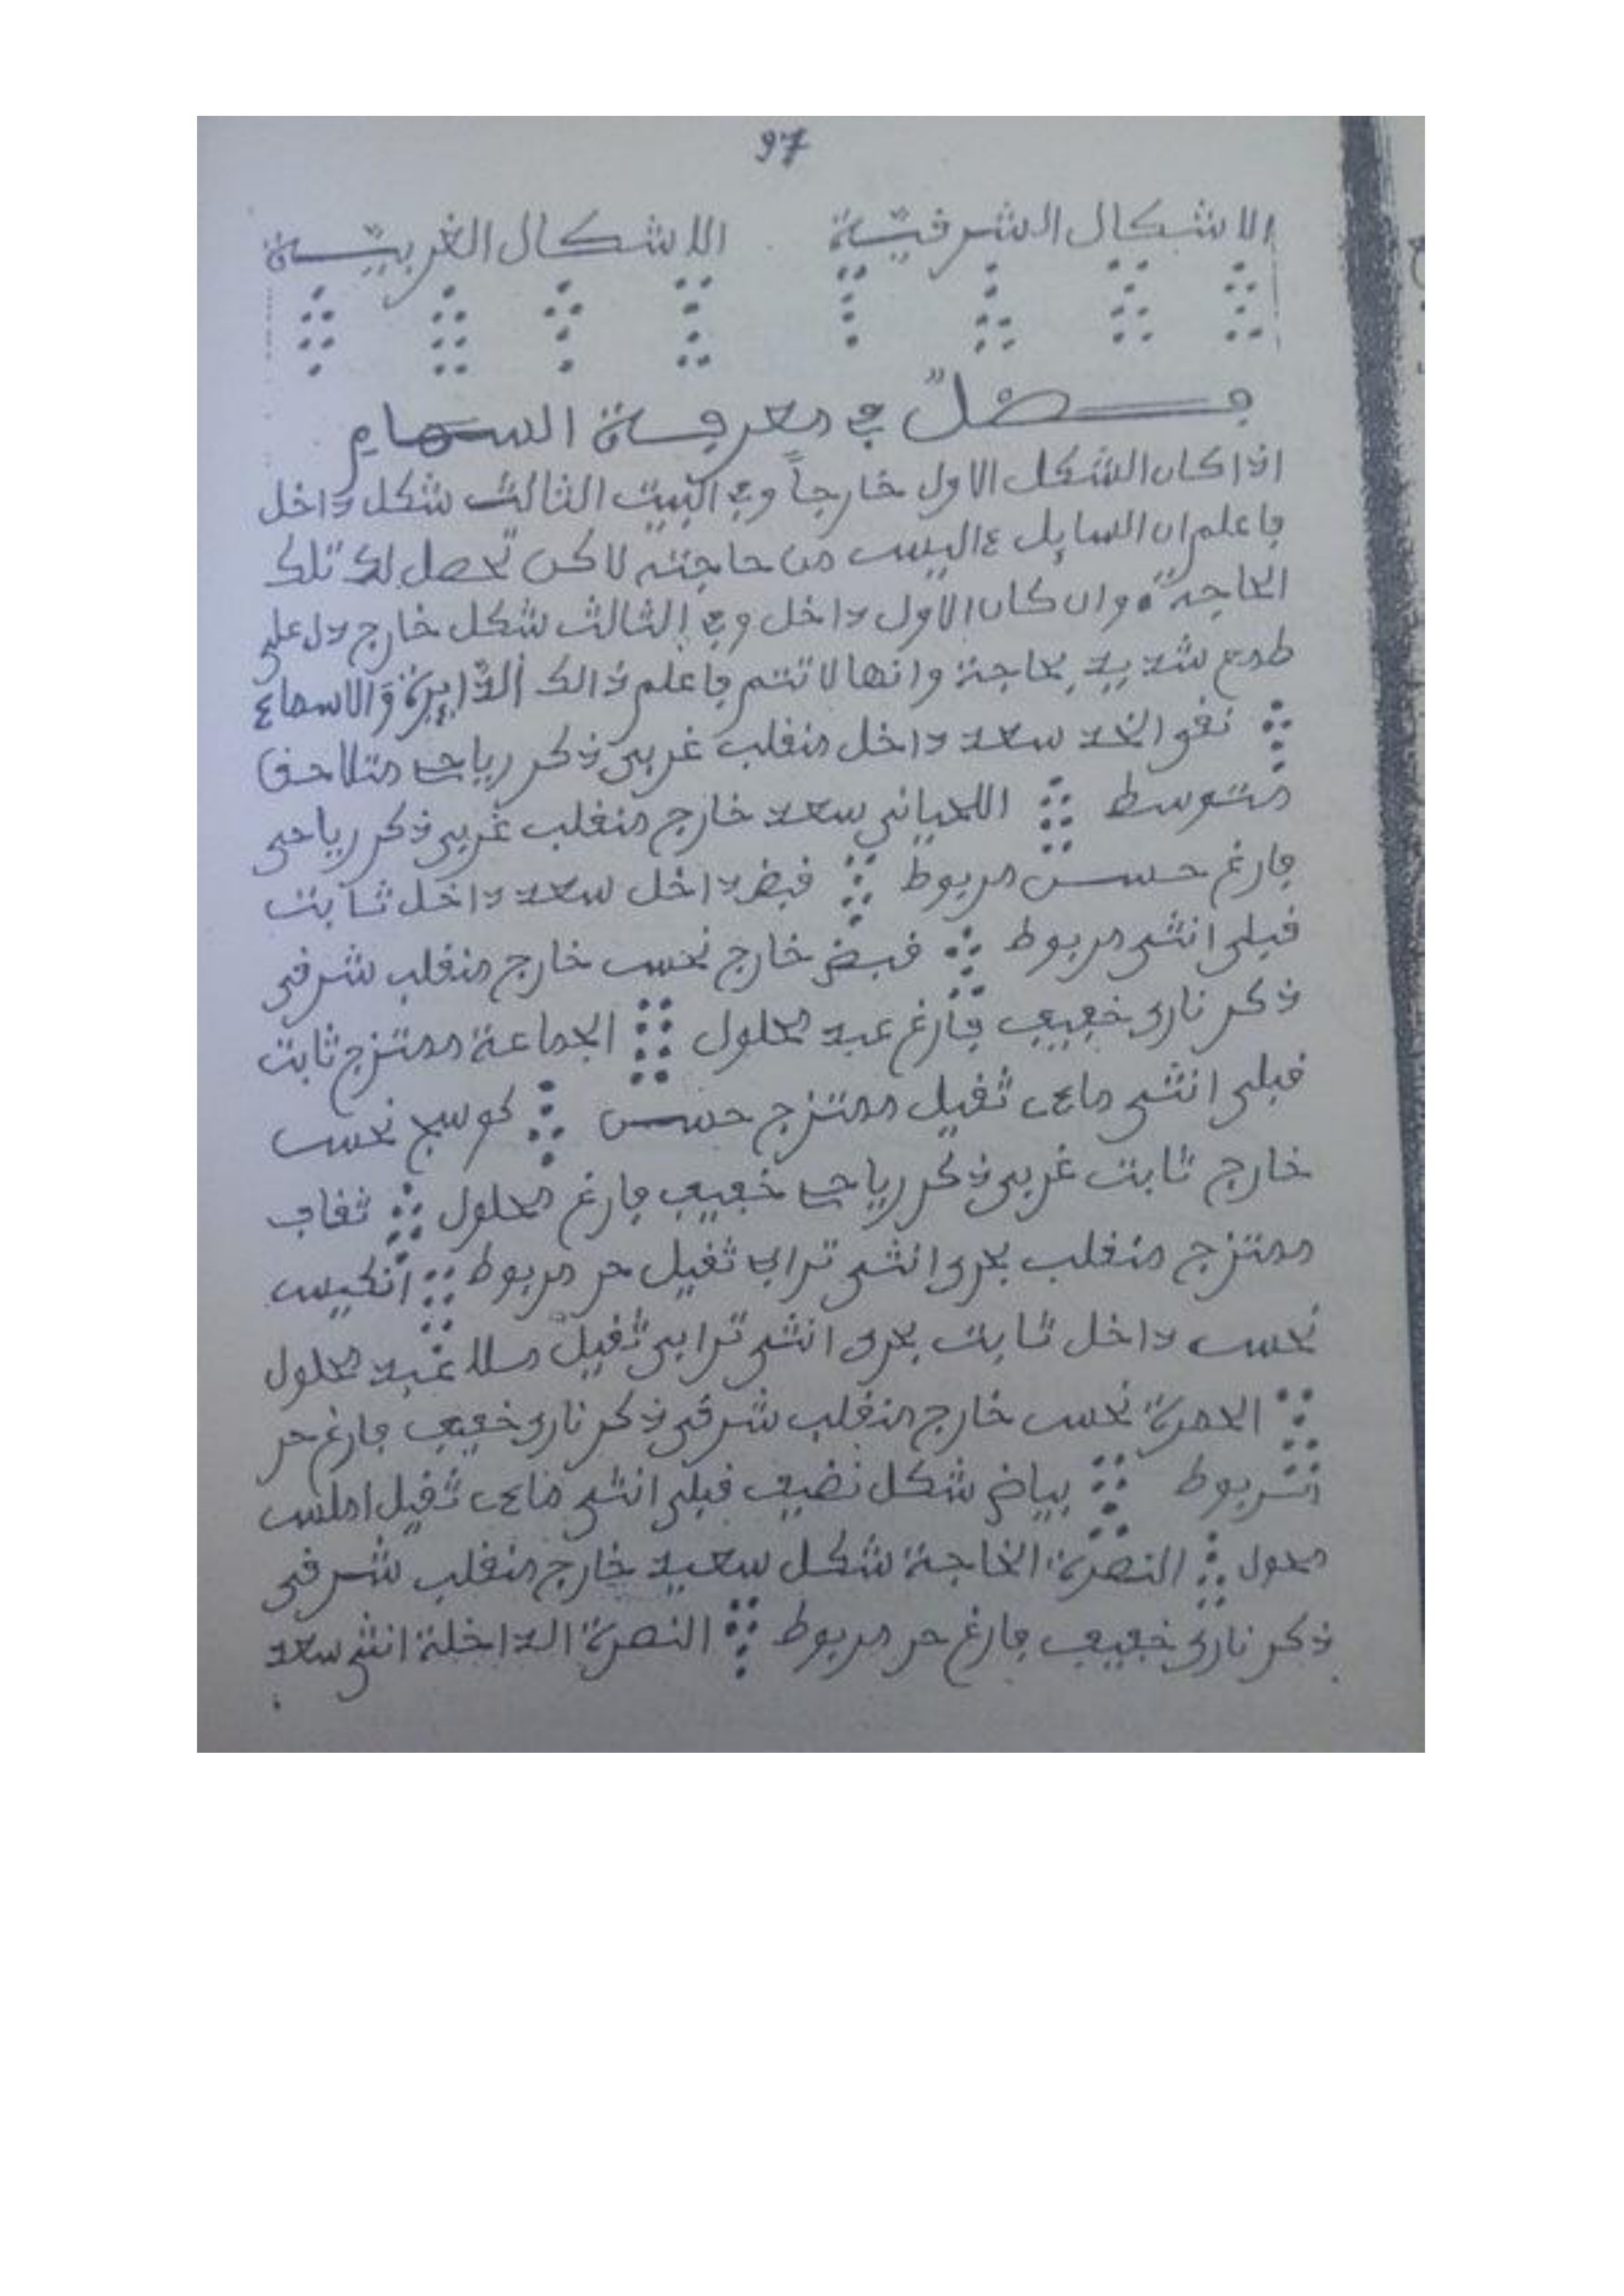 97
الاشكال الشرقية الاشكال الغربية
فصل في معرفة السهام
اذا كان الشكل الاول خارجاً وفي البيت الثالث شكل داخل
فاعلم ان السايل ءاليس من حاجته لاكن تحصل له تلك
الحاجة وان كان الاول داخل وفي الثالث شكل خارج دل على
طمع شديد بحاجة وانها لا تتم فاعلم ذالك الدايرة والاسماء
نقو الخد سعد داخل منقلب غربي ذكر رياحي متلاحق
متوسط اللحياني سعد خارج منقلب غربي ذكر رياحي
فارغ حسن مربوط قبض داخل سعد داخل ثابت
قبلي انثى مربوط قبض خارج نحس خارج منقلب شرقي
ذكر ناري خفيف فارغ عبد محلول الجماعة ممتزج ثابت
قبلي انثى ماءي ثقيل ممتزج حسن كوسج نحس
خارج ثابت غربي ذكر رياحي خفيف فارغ محلول ثقاف
ممتزج منقلب بحري انثى ترابي ثقيل حر مربوط انكيس
نحس داخل ثابت بحري انثى ترابي ثقيل عبد محلول
الحمرة نحس خارج منقلب شرقي ذكر ناري خفيف فارغ حر
بياض شكل نضيف قبلي انثى ماءي ثقيل املس
محول النصرة الخاجة شكل سعيد خارج منقلب شرقي
ذكر ناري خفيف فارغ حر مربوط النصرة الداخلة انثى سعد